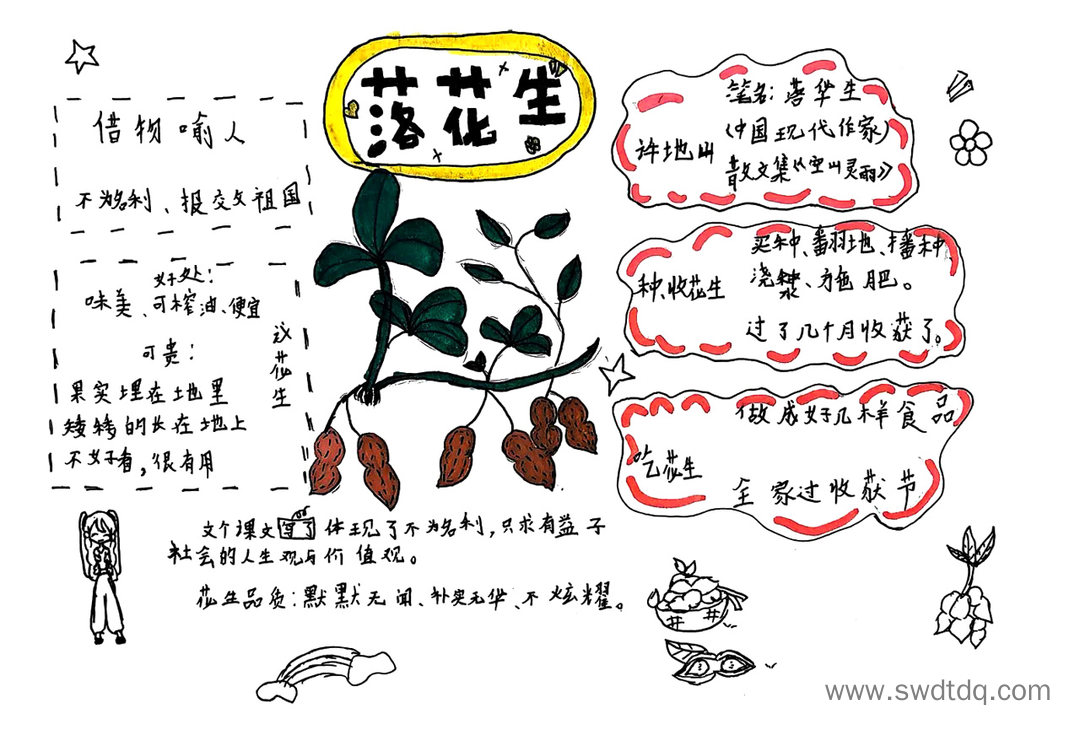 落花生
借物喻人
不为名利、报交文祖国
好处：
味美、可榨油、便宜
可贵：
果实埋在地里
矮矮的长在地上
不好看，很有用
议花生
许地山
笔名：落华生
(中国现代作家)
散文集《空山灵雨》
种、收花生
买种、翻地、播种
浇水、施肥。
过了几个月收获了。
吃花生
做成好几样食品
全家过收获节
文个课文写了体现了不为名利，只求有益于
社会的人生观与价值观。
花生品质：默默无闻、朴实无华、不炫耀。
www.swdtdq.com